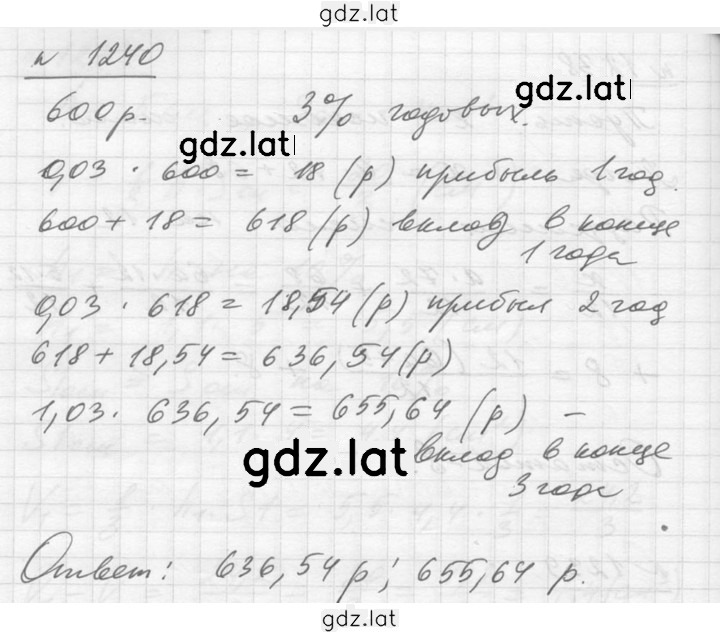 gdz.lat
№ 1240
600 р. 3% годовых.
gdz.lat
0,03 · 600 = 18 (р) прибыль 1 год.
600 + 18 = 618 (р) вклад в конце
1 года
0,03 · 618 = 18,54 (р) прибыл 2 год
618 + 18,54 = 636,54 (р)
1,03 · 636,54 = 655,64 (р) –
вклад в конце
3 года
gdz.lat
Ответ: 636,54 р; 655,64 р.
gdz.lat